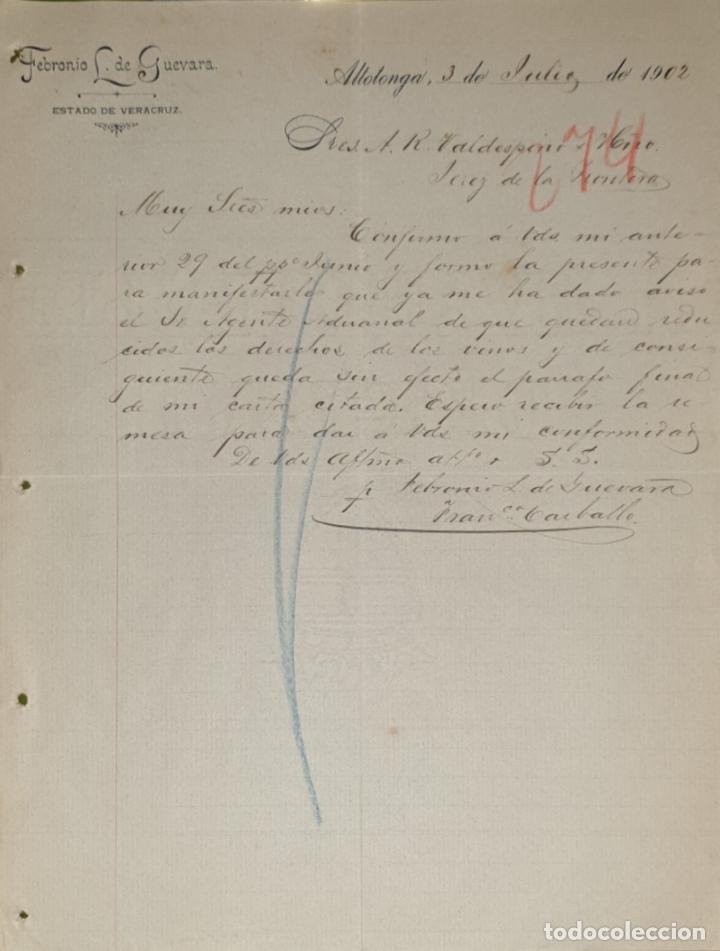 Febronio L. de Guevara.
ESTADO DE VERACRUZ.
Altotonga, 3 de Julio de 1902
Sres. A. R. Valdespino y Hno.
74
Jerez de la Frontera
Muy Sres mios:
Confirmo á Uds mi ante-
rior 29 del ppo Junio y formo la presente pa-
ra manifestarles que ya me ha dado aviso
el Sr. Agente Aduanal de que quedan redu-
cidos los derechos de los vinos y de consi-
guiente queda sin efecto el parrafo final
de mi carta citada. Espero recibir la re-
mesa para dar á Uds mi conformidad
De Uds Affmo atto S. S.
p Febronio L. de Guevara
Franco Carballo
todocoleccion
todocoleccion.net